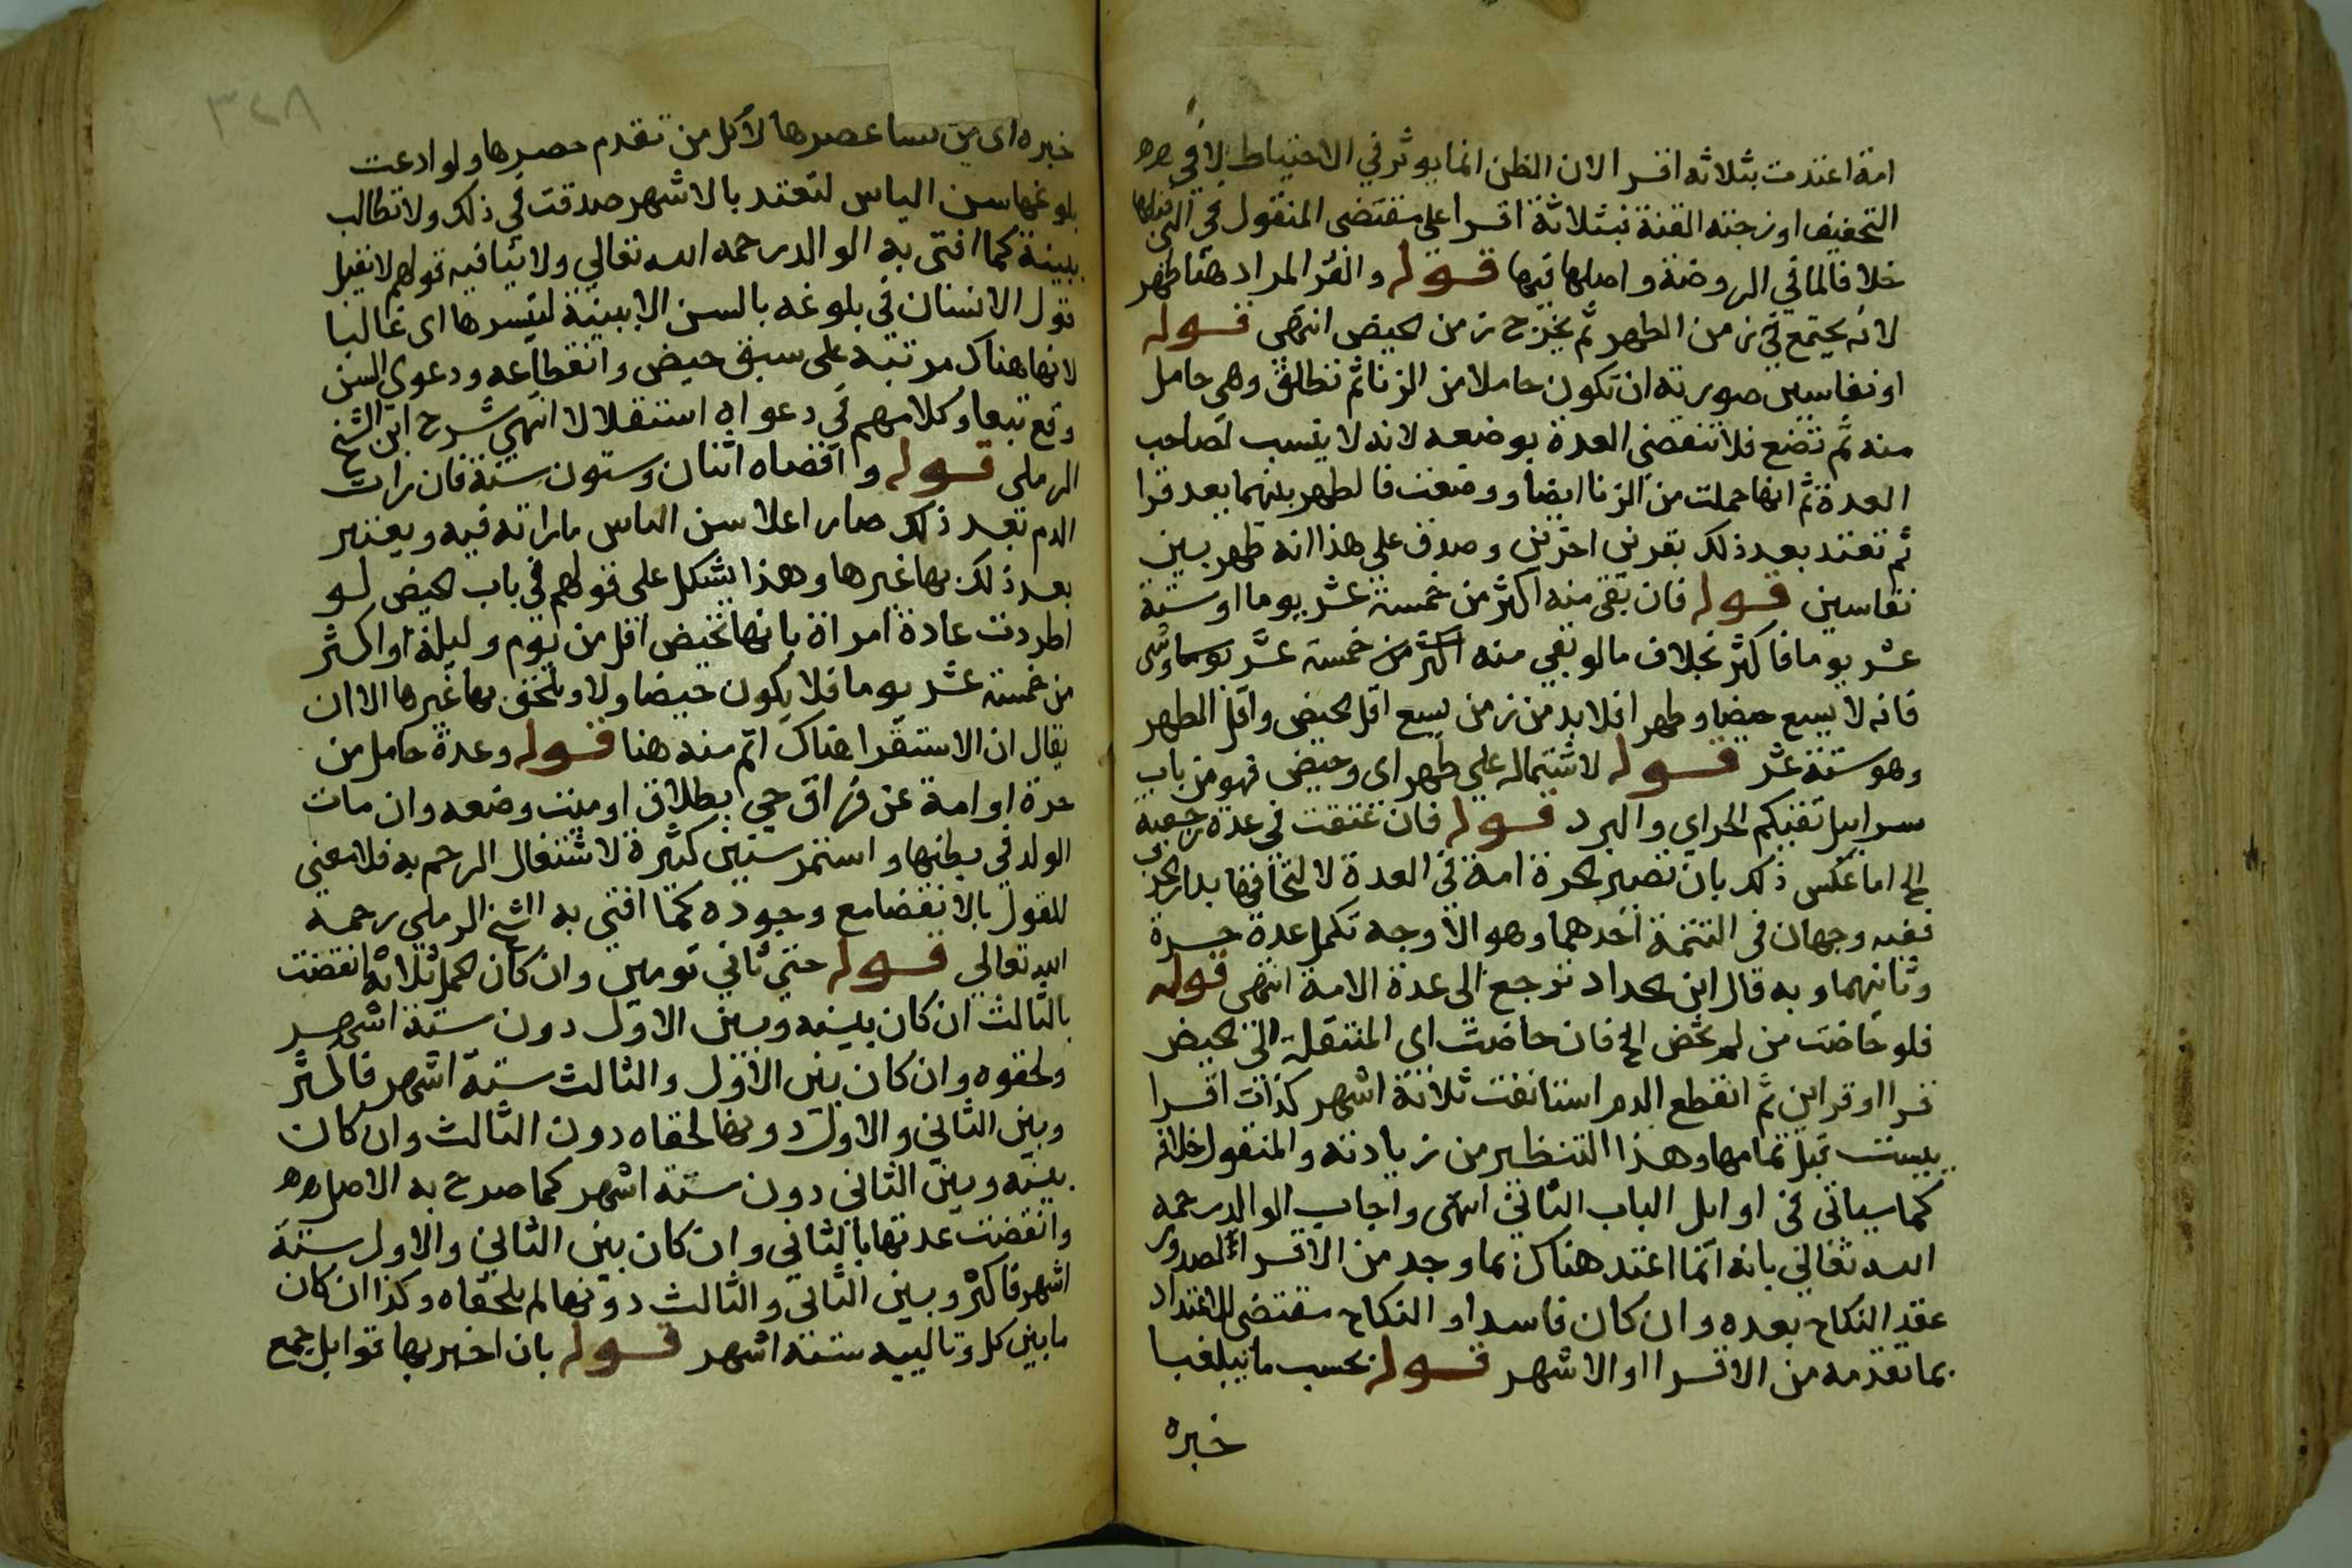 امة اعتدت بثلاثة اقرا لان الظن انما يوثر في الاحتياط لا في
التخفيف او زوجته القنة فبثلاثة اقرا على مقتضى المنقول في التي قبلها
خلافا لما في الروضة واصلها فيها قوله والقرا المراد هنا طهر
لانه يجتمع في زمن الطهر ثم يخرج زمن الحيض انتهى قوله
او نفاسين صورته ان تكون حاملا من الزنا ثم تطلق وهي حامل
منه ثم تضع فلا تنقضي العدة بوضعه لانه لا ينسب لصاحب
العدة ثم انها حملت من الزنا ايضا ووضعت فالطهر بينهما يعد قرا
ثم تعتد بعد ذلك بقرئين اخرين وصدق على هذا انه طهر بين
نفاسين قوله فان بقى منه اكثر من خمسة عشر يوما او ستة
عشر يوما فاكثر بخلاف ما لو بقي منه اكثر من خمسة عشر يوما
فانه لا يسع حيضا وطهرا فلا بد من زمن يسع اقل الحيض واقل الطهر
وهو ستة عشر قوله لاشتماله علي طهر اى وحيض فهو من باب
سرابيل تقيكم الحر اي والبرد قوله فان عتقت في عدة رجعية
الخ اما عكس ذلك بان تصير الحرة امة في العدة لالتحاقها بدار الحرب
ففيه وجهان في التتمة احدهما وهو الاوجه تكمل عدة حرة
وثانيهما وبه قال ابن الحداد ترجع الى عدة الامة انتهى قوله
فلو حاضت من لم تحض الخ فان حاضت اي المنتقلة الى الحيض
قرا او قراين ثم انقطع الدم استانفت ثلاثة اشهر كذات اقرا
يسيت قبل تمامها وهذا التنظير من زيادته والمنقول خلافه
كما سياتى في اوايل الباب الثاني انتهى واجاب الوالد رحمه
الله تعالى بانه انما اعتد هناك بما وجد من الاقراء لصدور
عقد النكاح بعده وان كان فاسدا والنكاح مقتضى للاعتداد
بما تقدمه من الاقرا او الاشهر قوله بحسب ما يبلغنا
خبره
٣٤٨
خبره اى من نسا عصرها لا كل من تقدم عصرها ولو ادعت
بلوغها سن الياس لتعتد بالاشهر صدقت في ذلك ولا تطالب
ببينة كما افتى به الوالد رحمه الله تعالي ولا ينافيه قولهم لا يقبل
قول الانسان في بلوغه بالسن الا ببينة لتيسرها اى غالبا
لانها هناك مرتبة على سبق حيض وانقطاعه ودعوى السن
وقع تبعا وكلامهم في دعواه استقلالا انتهي شرح ابن الشيخ
الرملى قوله واقصاه اثنان وستون سنة فان رات
الدم بعد ذلك صار اعلا سن الياس ما راته فيه ويعتبر
بعد ذلك بها غيرها وهذا يشكل على قولهم في باب الحيض لو
اطردت عادة امراة بانها تحيض اقل من يوم وليلة او اكثر
من خمسة عشر يوما فلا يكون حيضا ولا يلحق بها غيرها الا ان
يقال ان الاستقرا هناك اتم منه هنا قوله وعدة حامل من
حرة او امة عن فراق حي بطلاق او ميت وضعه وان مات
الولد في بطنها واستمر سنين كثيرة لاشتغال الرحم به فلا معنى
للقول بالانقضا مع وجوده كما افتى به الشيخ الرملي رحمه
الله تعالى قوله حتى ثاني تومين وان كان الحمل ثلاثة انقضت
بالثالث ان كان بينه وبين الاول دون ستة اشهر
ولحقوه وان كان بين الاول والثالث ستة اشهر فاكثر
وبين الثاني والاول دونها لحقاه دون الثالث وان كان
بينه وبين الثاني دون ستة اشهر كما صرح به الاصل
وانقضت عدتها بالثاني وان كان بين الثاني والاول ستة
اشهر فاكثر وبين الثاني والثالث دونها لم يلحقاه وكذا ان كان
ما بين كل وتالييه ستة اشهر قوله بان اخبر بها قوابل جمع